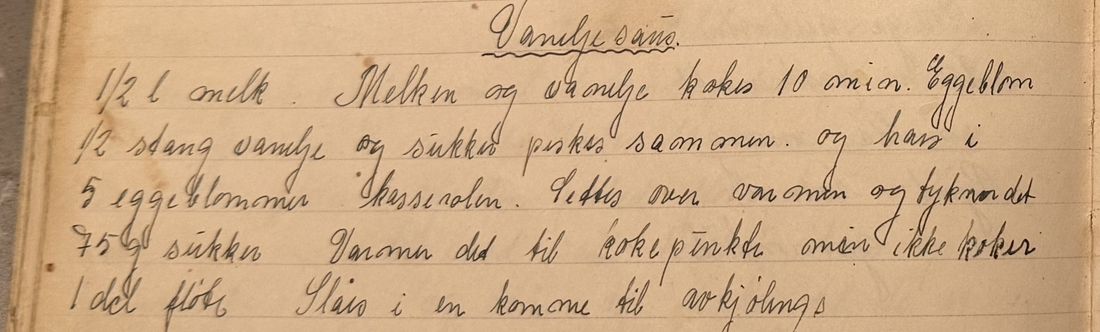 Vanelje saus.
1/2 l melk. Melken og vanelje kokes 10 min. Eggeblom
1/2 stang vanelje og sukker piskes sammen. og haes i
5 eggeblommer kasserolen. Settes over varmen og tyknor det
75 g sukker Varmer det til kokepunkte men ikke koker
1 del fløte Slåes i en komme til avkjølings